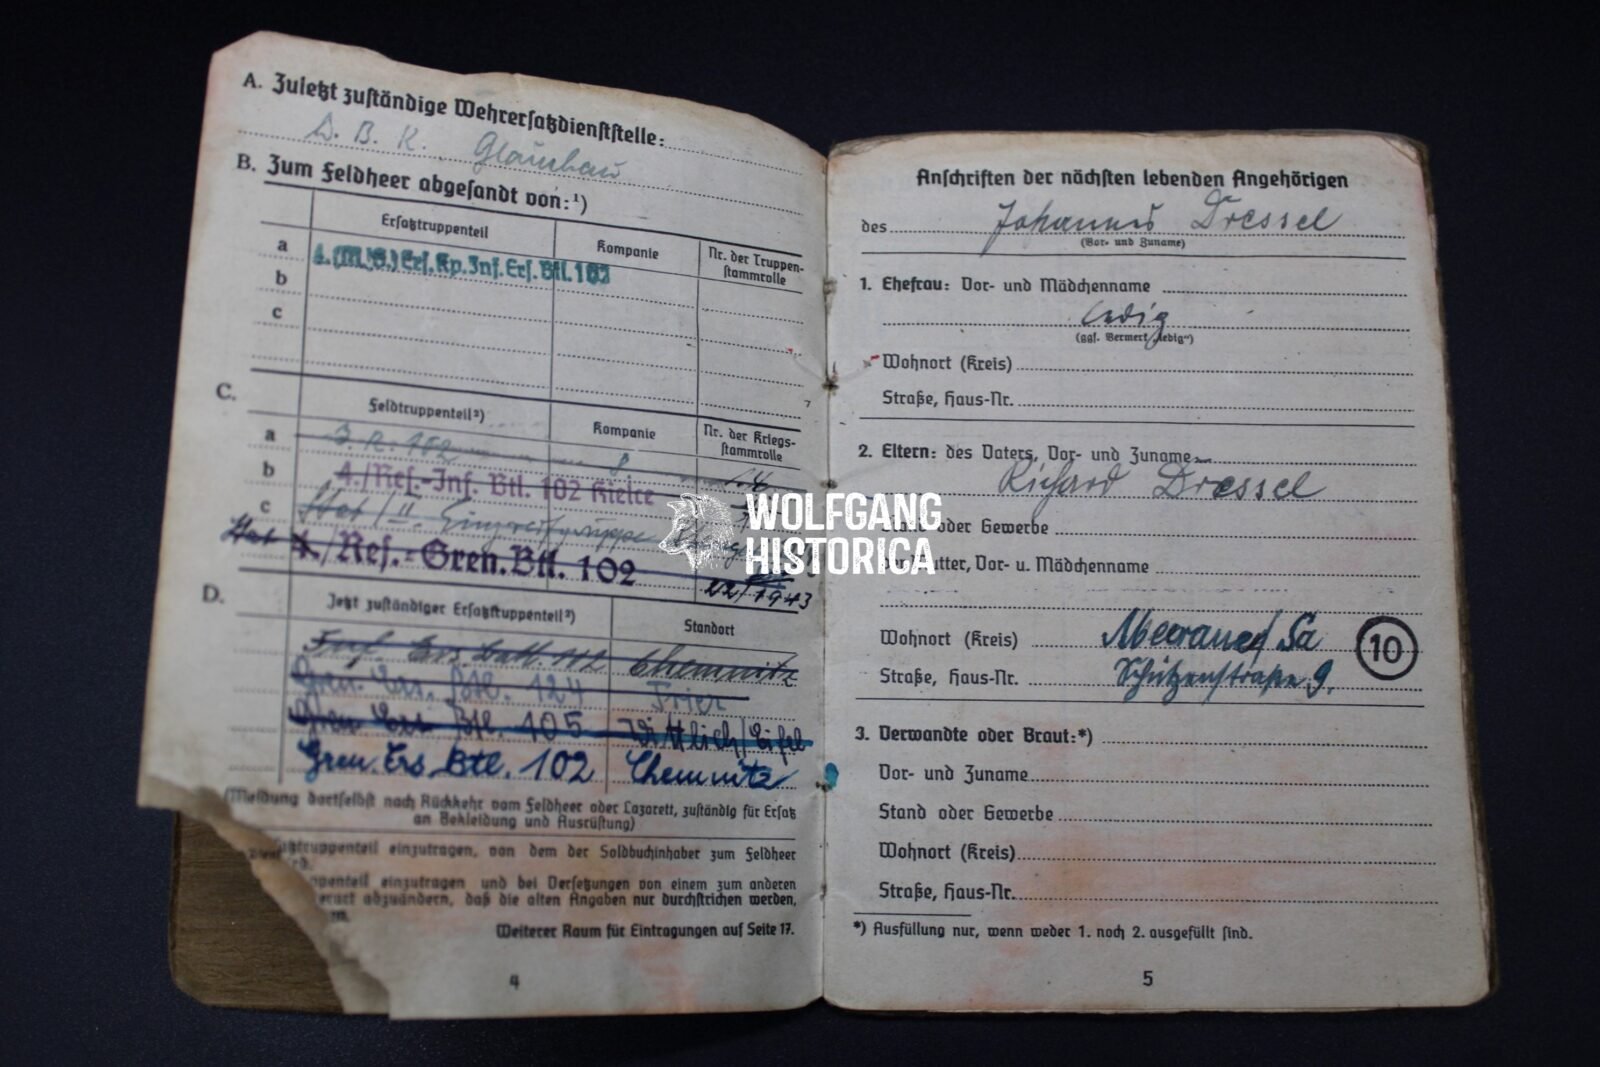 A. Zuletzt zuständige Wehrersatzdienststelle:
W. B. K. Glauchau
B. Zum Feldheer abgesandt von:¹)
Ersatztruppenteil Kompanie Nr. der Truppen-
stammrolle
a 4.(M.G.) Ers. Kp. Inf. Ers. Btl. 102
b
c
C.
Feldtruppenteil²) Kompanie Nr. der Kriegs-
stammrolle
a J. R. 102 8
b 4./Res.-Inf. Btl. 102 Kielce
c Stat / II. Eingreifgruppe
4./Res.-Gren. Btl. 102 22/ 1943
D.
Jetzt zuständiger Ersatztruppenteil²) Standort
Inf. Ers. Batl. 112 Chemnitz
Gren. Ers. Btl. 124 Trier
Gren Ers Btl. 105 Wittlich/Eifel
Gren. Ers. Btl. 102 Chemnitz
(Meldung dortselbst nach Rückkehr vom Feldheer oder Lazarett, zuständig für Ersatz
an Bekleidung und Ausrüstung)
einzutragen, von dem der Soldbuchinhaber zum Feldheer
einzutragen und bei Versetzungen von einem zum anderen
abzuändern, daß die alten Angaben nur durchstrichen werden,
Weiterer Raum für Eintragungen auf Seite 17.
4
Anschriften der nächsten lebenden Angehörigen
des Johannes Dressel
(Vor- und Zuname)
1. Ehefrau: Vor- und Mädchenname
ledig
(ggf. Vermerk „ledig“)
Wohnort (Kreis)
Straße, Haus-Nr.
2. Eltern: des Vaters, Vor- und Zuname
Richard Dressel
Stand oder Gewerbe
der Mutter, Vor- u. Mädchenname
Wohnort (Kreis) Meerane/ Sa
Straße, Haus-Nr. Schützenstraße 9.
10
3. Verwandte oder Braut:*)
Vor- und Zuname
Stand oder Gewerbe
Wohnort (Kreis)
Straße, Haus-Nr.
*) Ausfüllung nur, wenn weder 1. noch 2. ausgefüllt sind.
5
WOLFGANG
HISTORICA